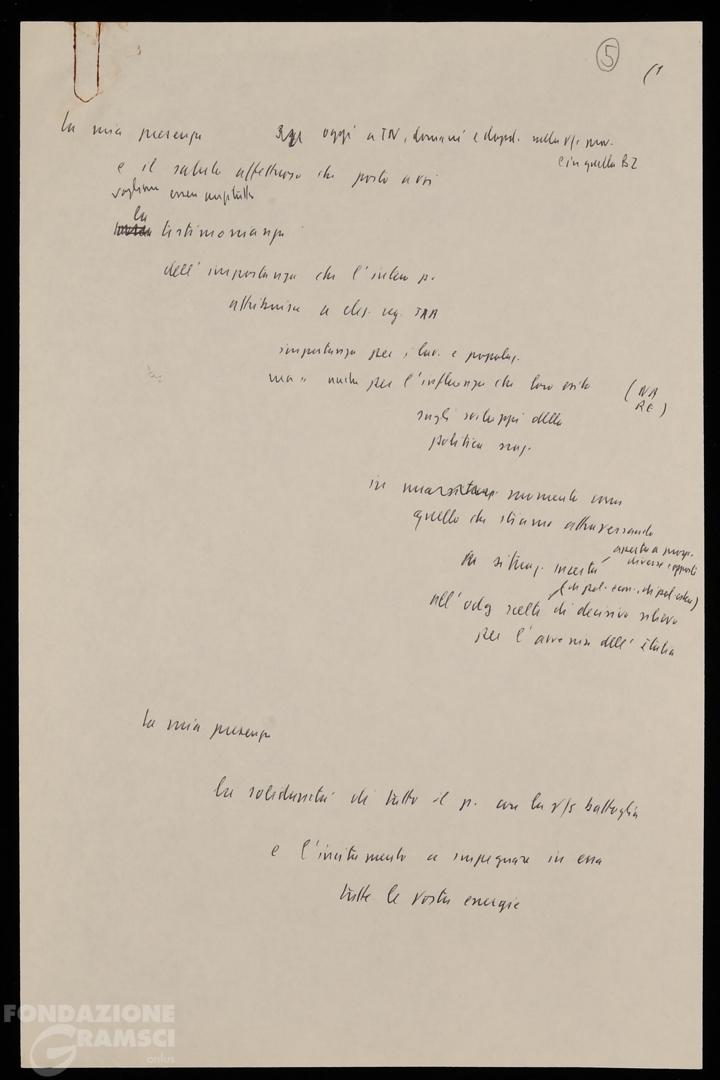 5
(1
La mia presenza oggi a TN, domani e dopod. nella v/s prov.
e in quella BZ
e il saluto affettuoso che porto a voi
vogliono essere
la
testimonianza
dell'importanza che l'intero p.
attribuisce a elez. reg. TAA
importanza per i lav. e popolaz.
ma anche per l'influenza che loro esito
sugli sviluppi della
politica naz.
in momento come
quello che stiamo attraversando
aperta a prosp.
diverse e opposte
situaz. incerta
(di pol. econ., di pol. estera)
all'odg scelte di decisivo rilievo
per l'avvenire dell'Italia
La mia presenza
la solidarietà di tutto il p. con la v/s battaglia
e l'incitamento a impegnare in essa
tutte le vostre energie
FONDAZIONE
GRAMSCI
onlus